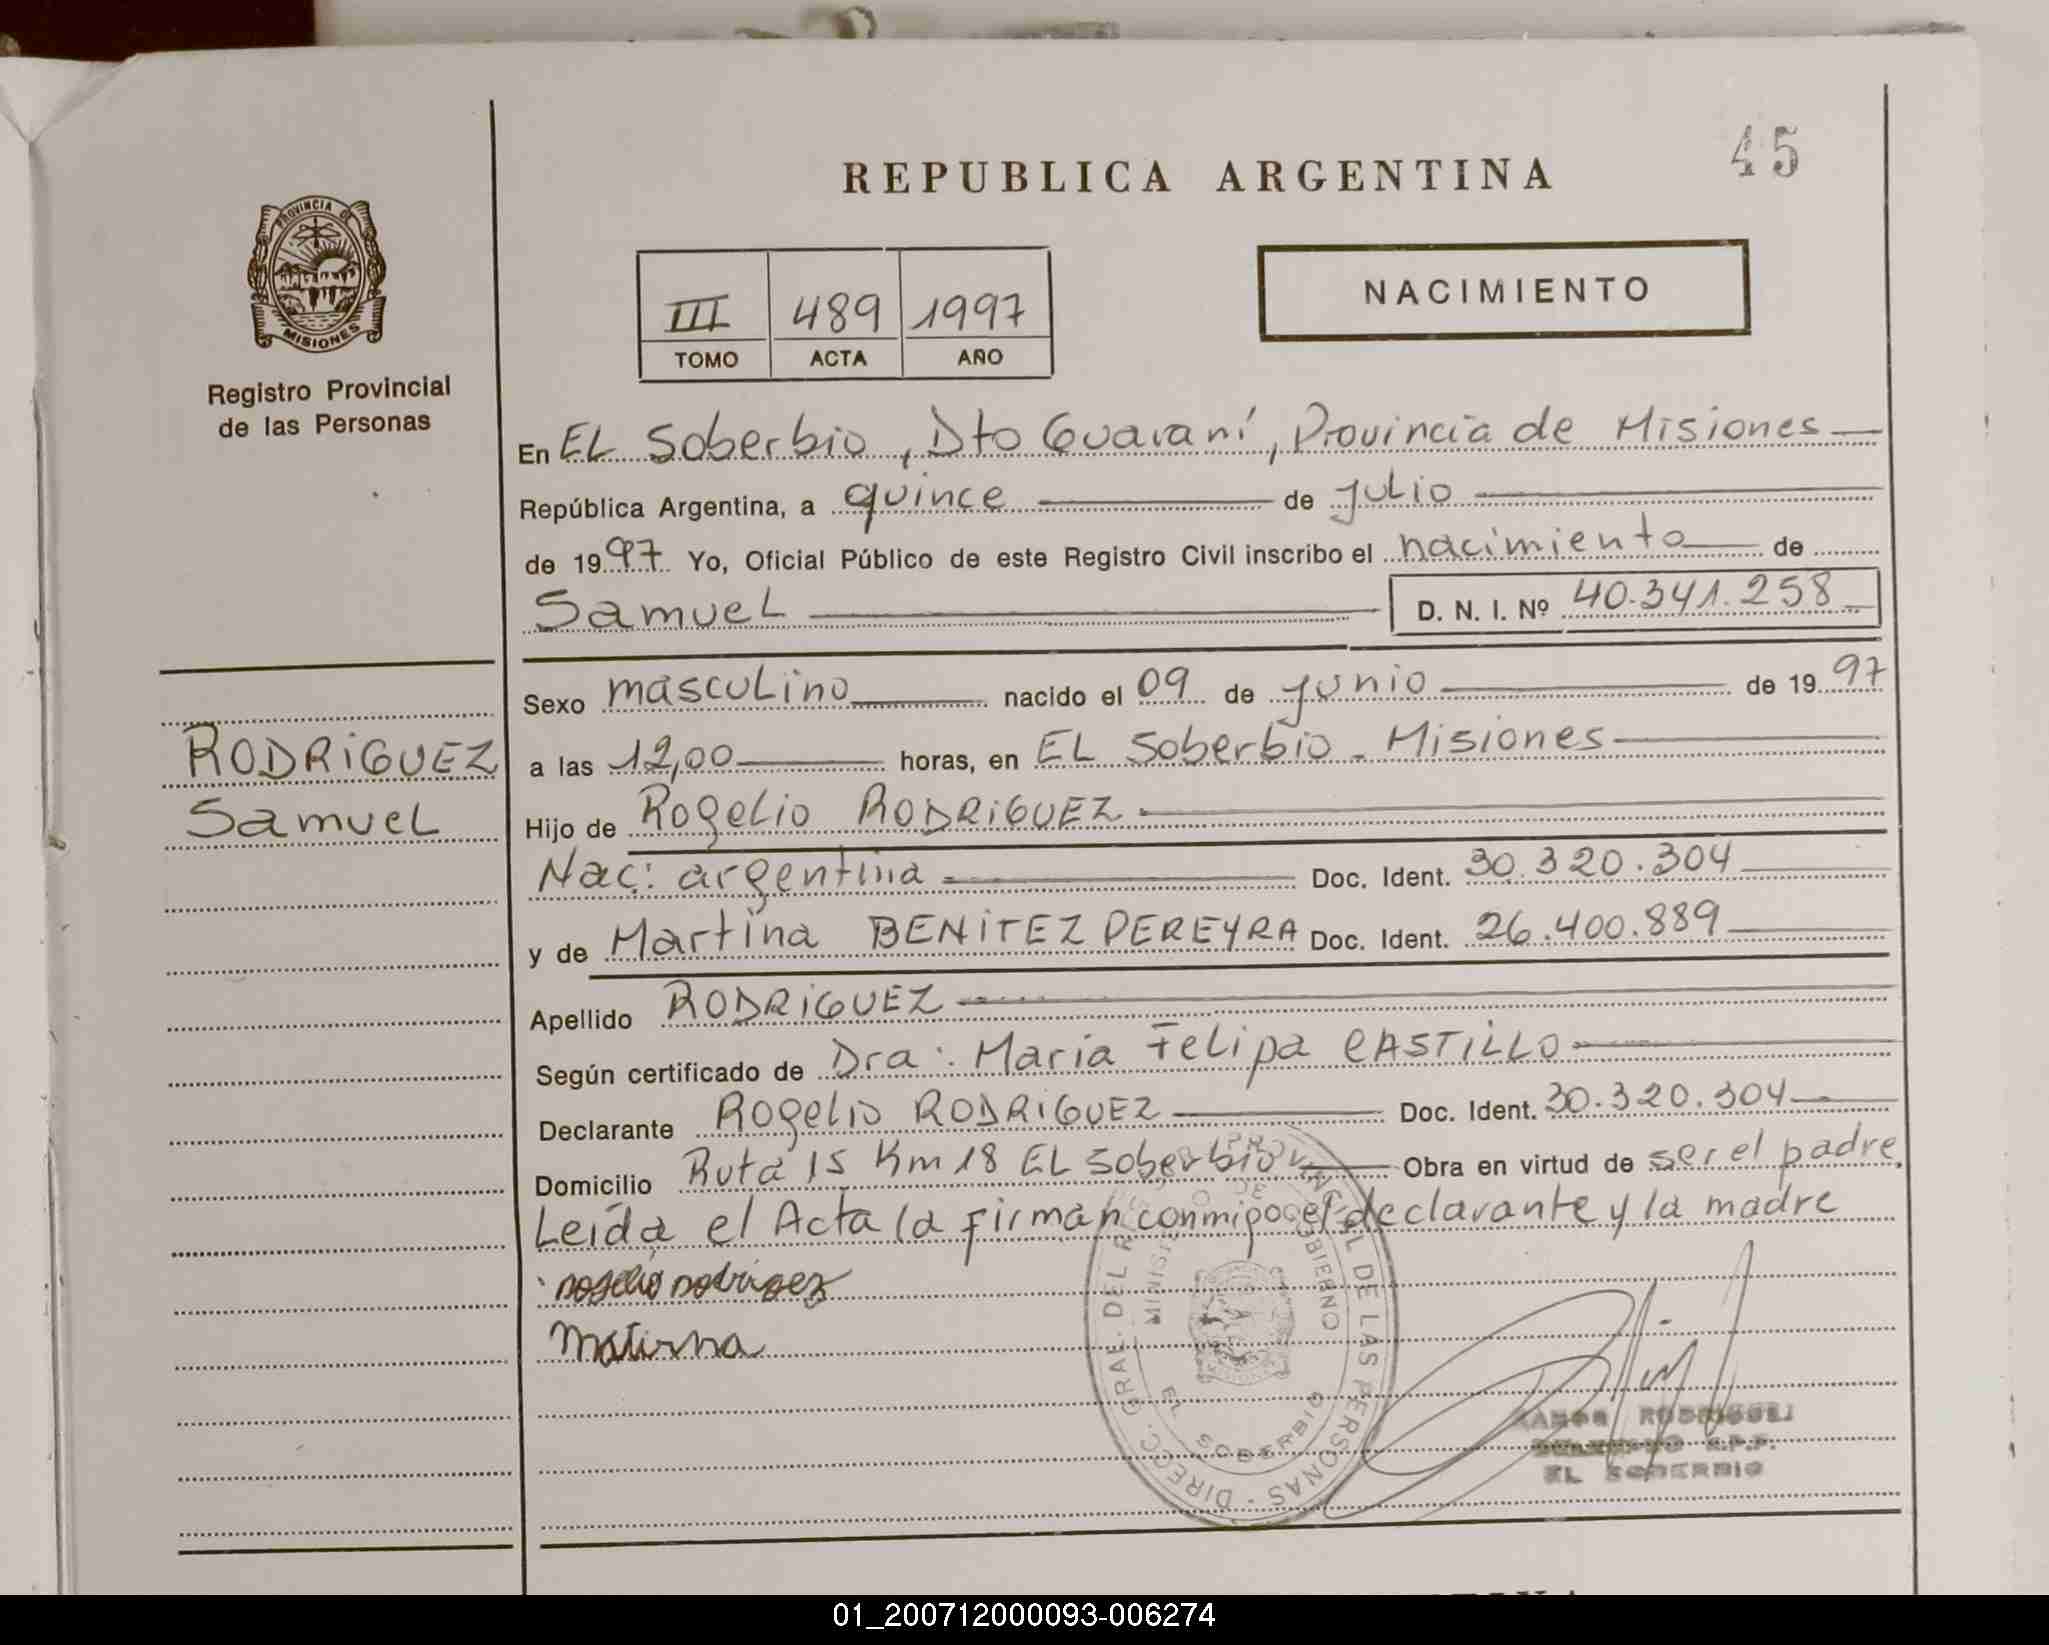 45
REPUBLICA ARGENTINA
PROVINCIA DE
MISIONES
Registro Provincial
de las Personas
III 489 1997
TOMO ACTA AÑO
NACIMIENTO
En EL Soberbio, Dto Guaraní, Provincia de Misiones
República Argentina, a quince de Julio
de 1997 Yo, Oficial Público de este Registro Civil inscribo el nacimiento de
Samuel D. N. I. Nº 40.341.258
Sexo masculino nacido el 09 de junio de 1997
RODRIGUEZ
Samuel
a las 12,00 horas, en EL Soberbio - Misiones
Hijo de Rogelio RODRIGUEZ
Nac: argentina Doc. Ident. 30.320.304
y de Martina BENITEZ PEREYRA Doc. Ident. 26.400.889
Apellido RODRIGUEZ
Según certificado de Dra: Maria Felipa CASTILLO
Declarante Rogelio RODRIGUEZ Doc. Ident. 30.320.304
Domicilio Ruta 15 Km 18 EL Soberbio Obra en virtud de ser el padre.
Leída el Acta la firman conmigo el declarante y la madre
rogelio rodrigez
DIRECC. GRAL. DEL PROVINCIAL DE LAS PERSONAS
MINISTERIO DE GOBIERNO
EL SOBERBIO
RAMON RODRIGUEZ
EL SOBERBIO
01_200712000093-006274